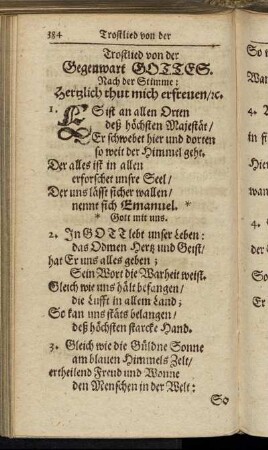 384 Trostlied von der
Trostlied von der
Gegenwart GOTTES.
Nach der Stimme:
Hertzlich thut mich erfreuen/ꝛc.
1. ES ist an allen Orten
deß höchsten Majestät/
Er schwebet hier und dorten
so weit der Himmel geht.
Der alles ist in allen
erforschet unsre Seel/
Der uns lässt sicher wallen/
nennt sich Emanuel. *
* Gott mit uns.
2. In GOTT lebt unser Leben:
das Odmen Hertz und Geist/
hat Er uns alles geben;
Sein Wort die Warheit weist.
Gleich wie uns hält befangen/
die Lufft in allem Land;
So kan uns stäts belangen/
deß höchsten starcke Hand.
3. Gleich wie die Güldne Sonne
am blauen Himmels Zelt/
ertheilend Freud und Wonne
den Menschen in der Welt:
So
So
War
4. A
Wan
4. 
So